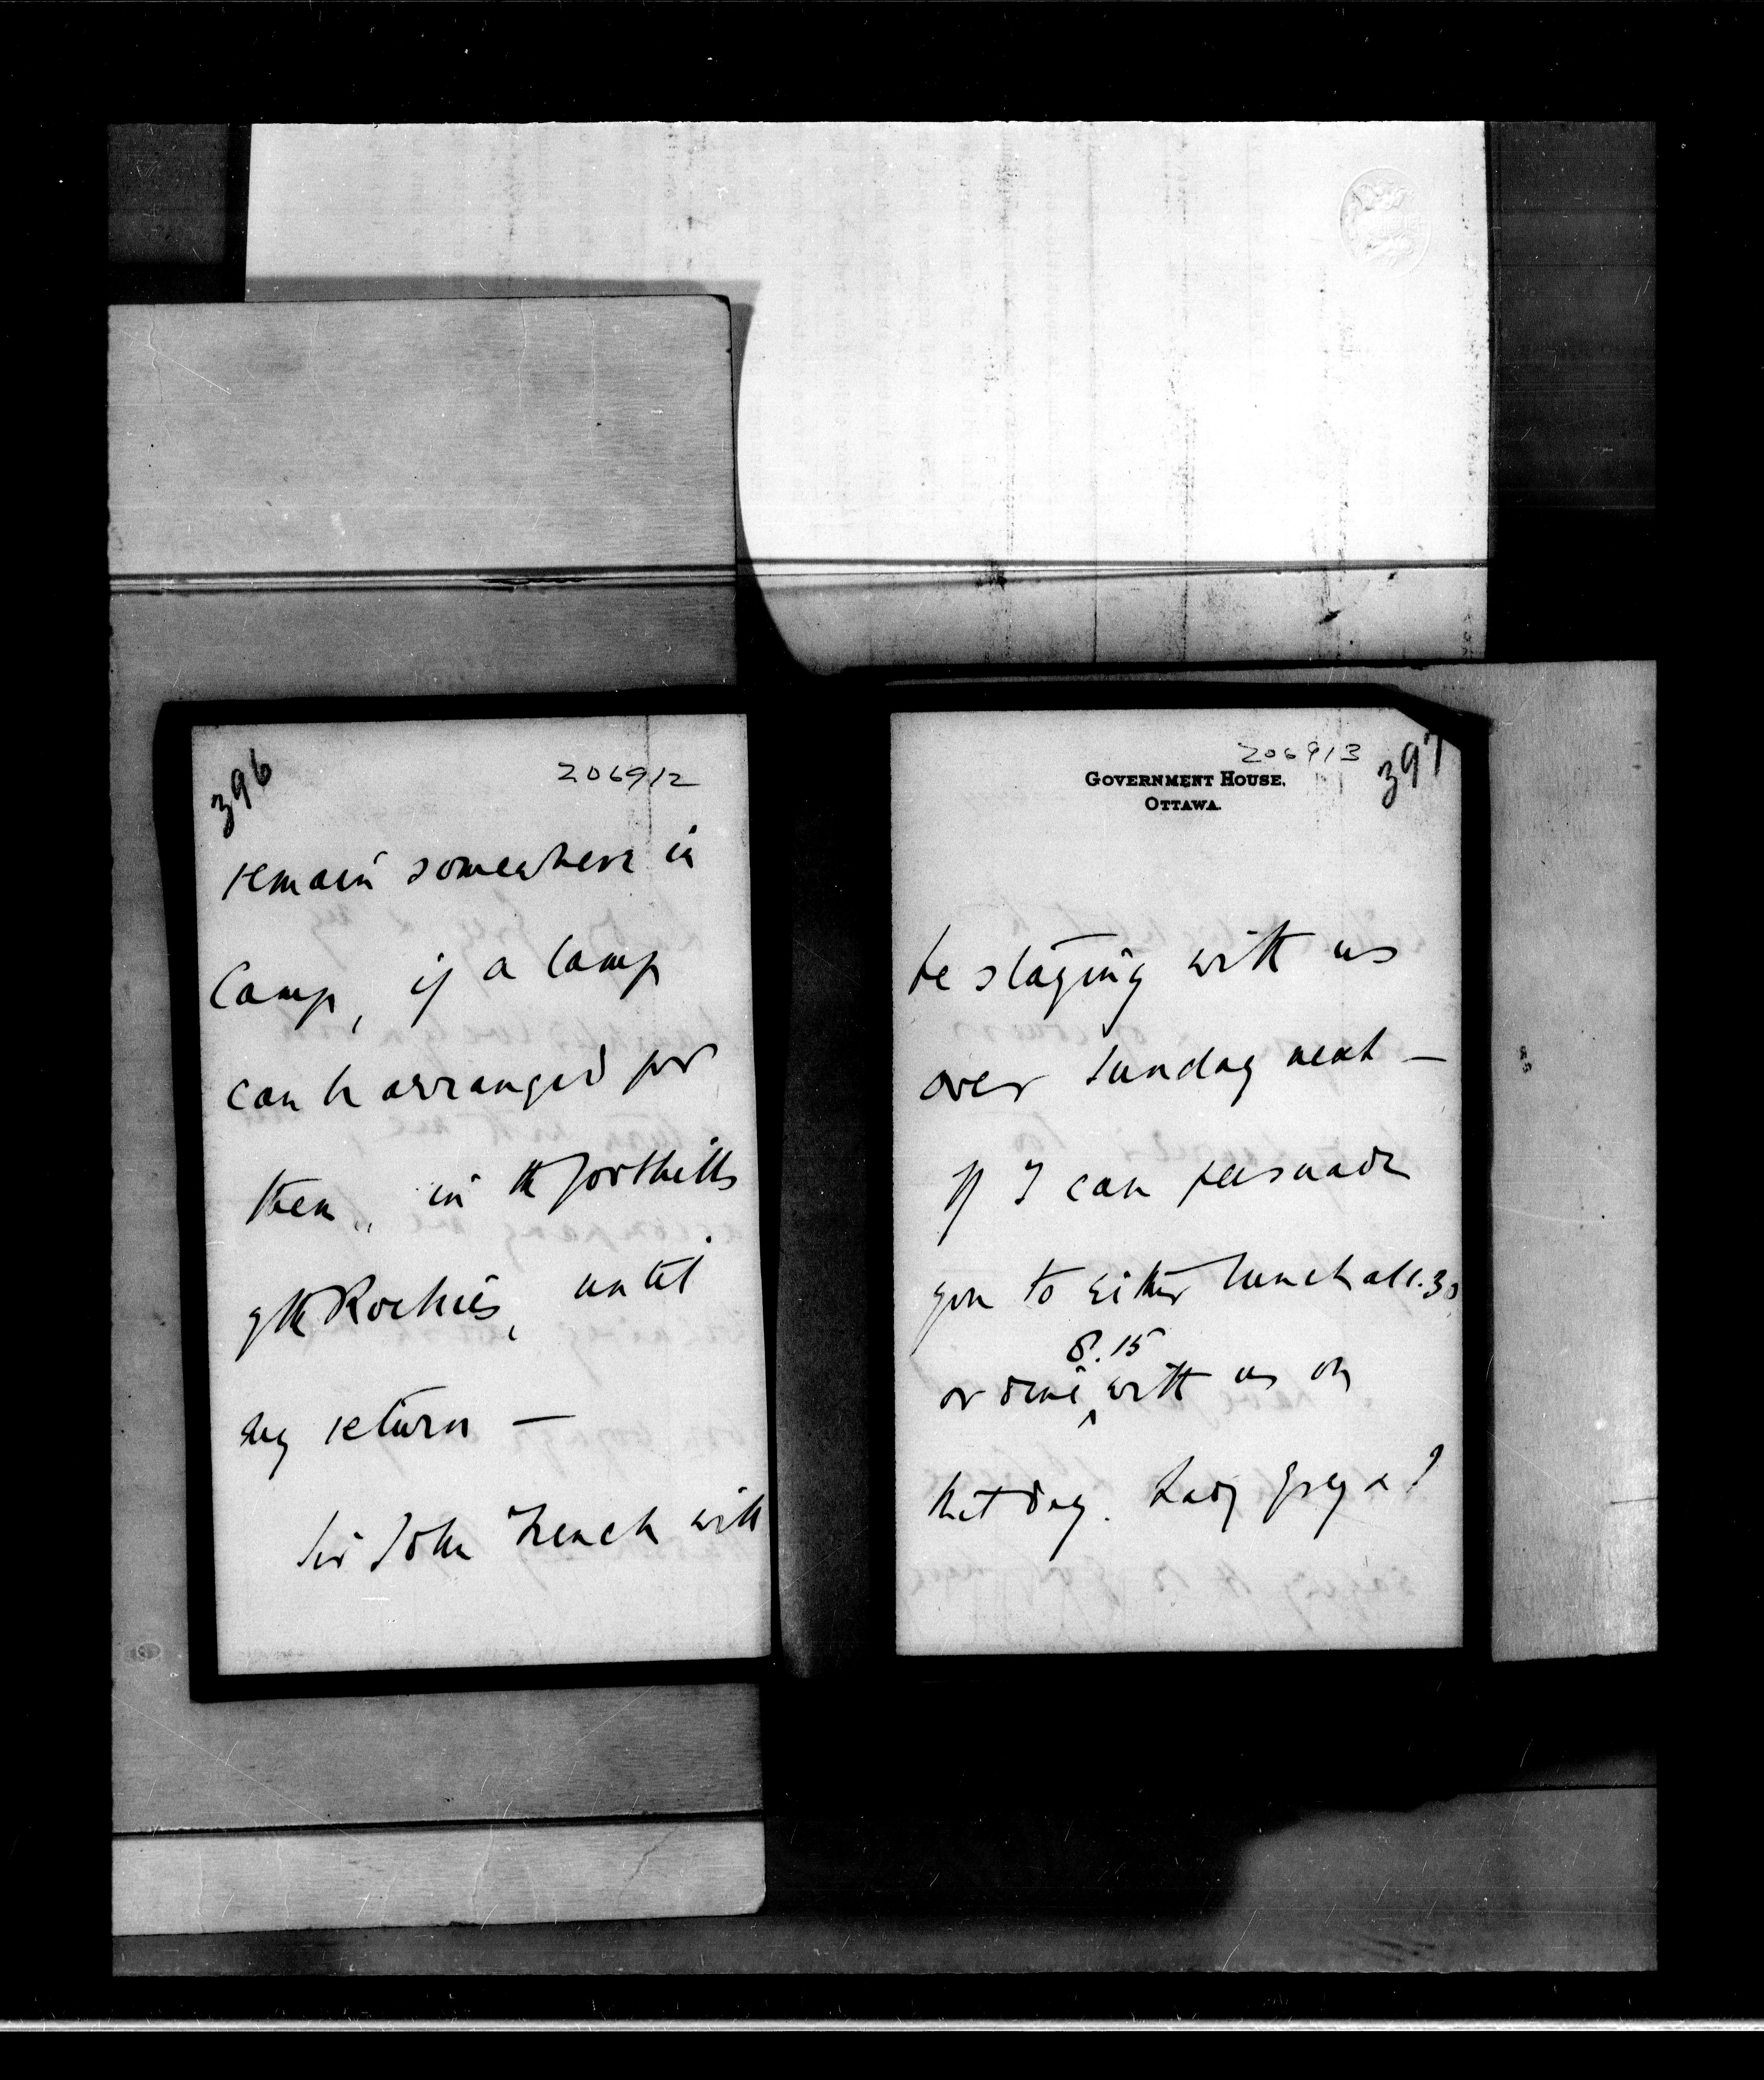 396
206912
remain somewhere in
Camp, if a Camp
can be arranged for
them, in the foothills
of the Rockies, until
my return —
Sir John French will
206913
397
GOVERNMENT HOUSE,
OTTAWA.
be staying with us
over Sunday next —
If I can persuade
you to either lunch at 1.30
8.15
or dine with us on
that day. Lady Grey & I